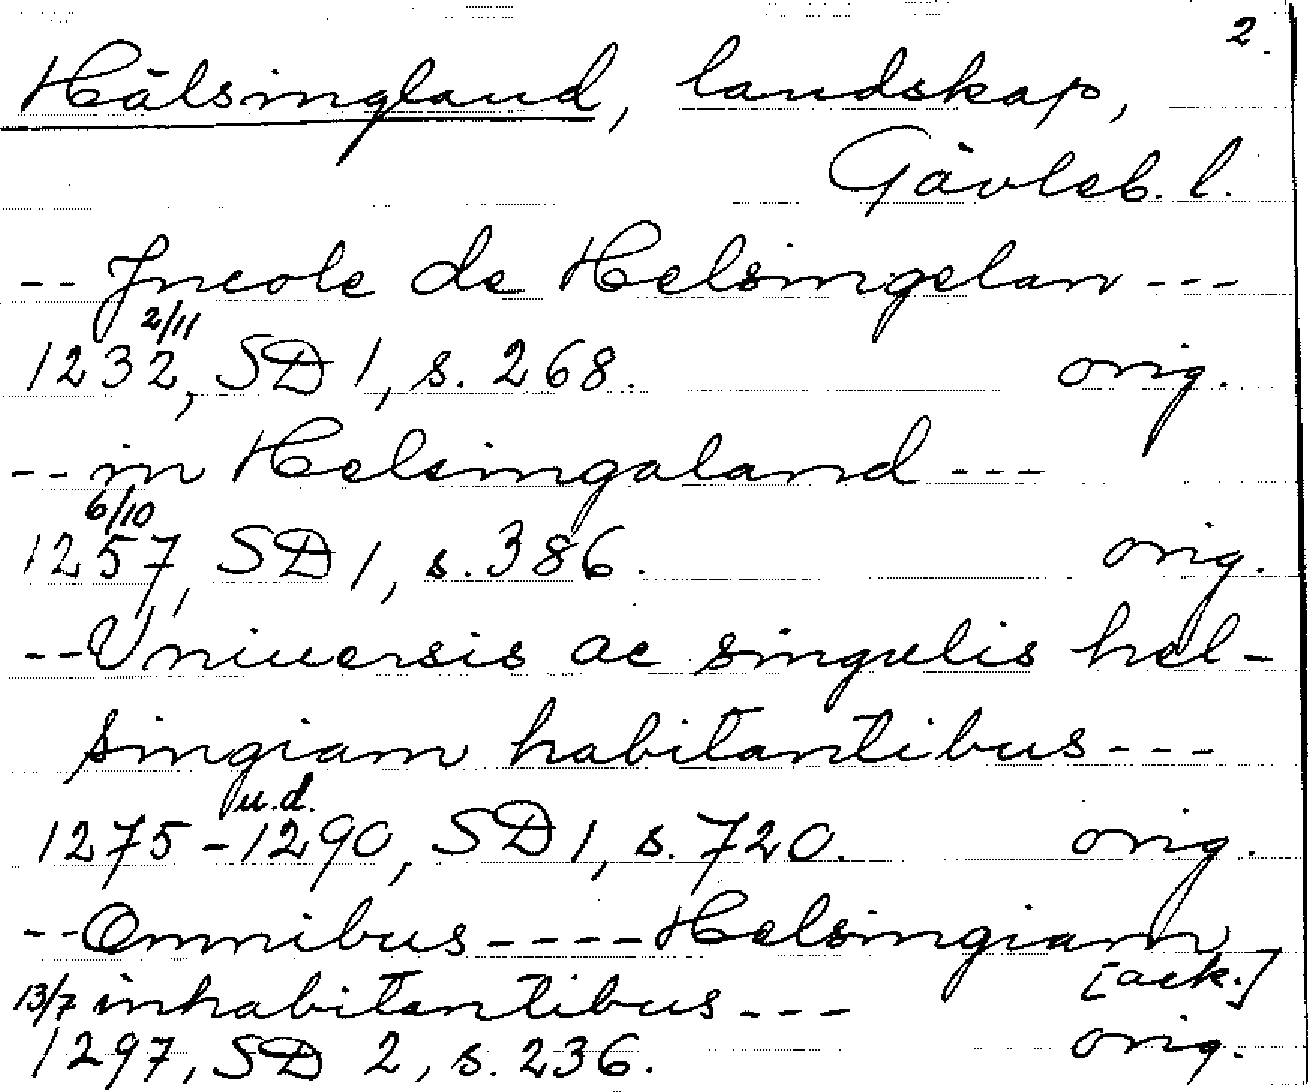 2.
Hälsingland, landskap,
Gävleb. l.
-- Jncole de Helsingelan ---
2/11
1232, SD 1, s. 268. orig.
-- in Helsingaland ---
6/10
1257, SD 1, s. 386. orig.
-- Vniuersis ac singulis hel-
singiam habitantibus ---
u.d.
1275-1290, SD 1, s. 720. orig.
-- Omnibus ---- Helsingiam
13/7 inhabitantibus --- [ack.]
1297, SD 2, s. 236. orig.